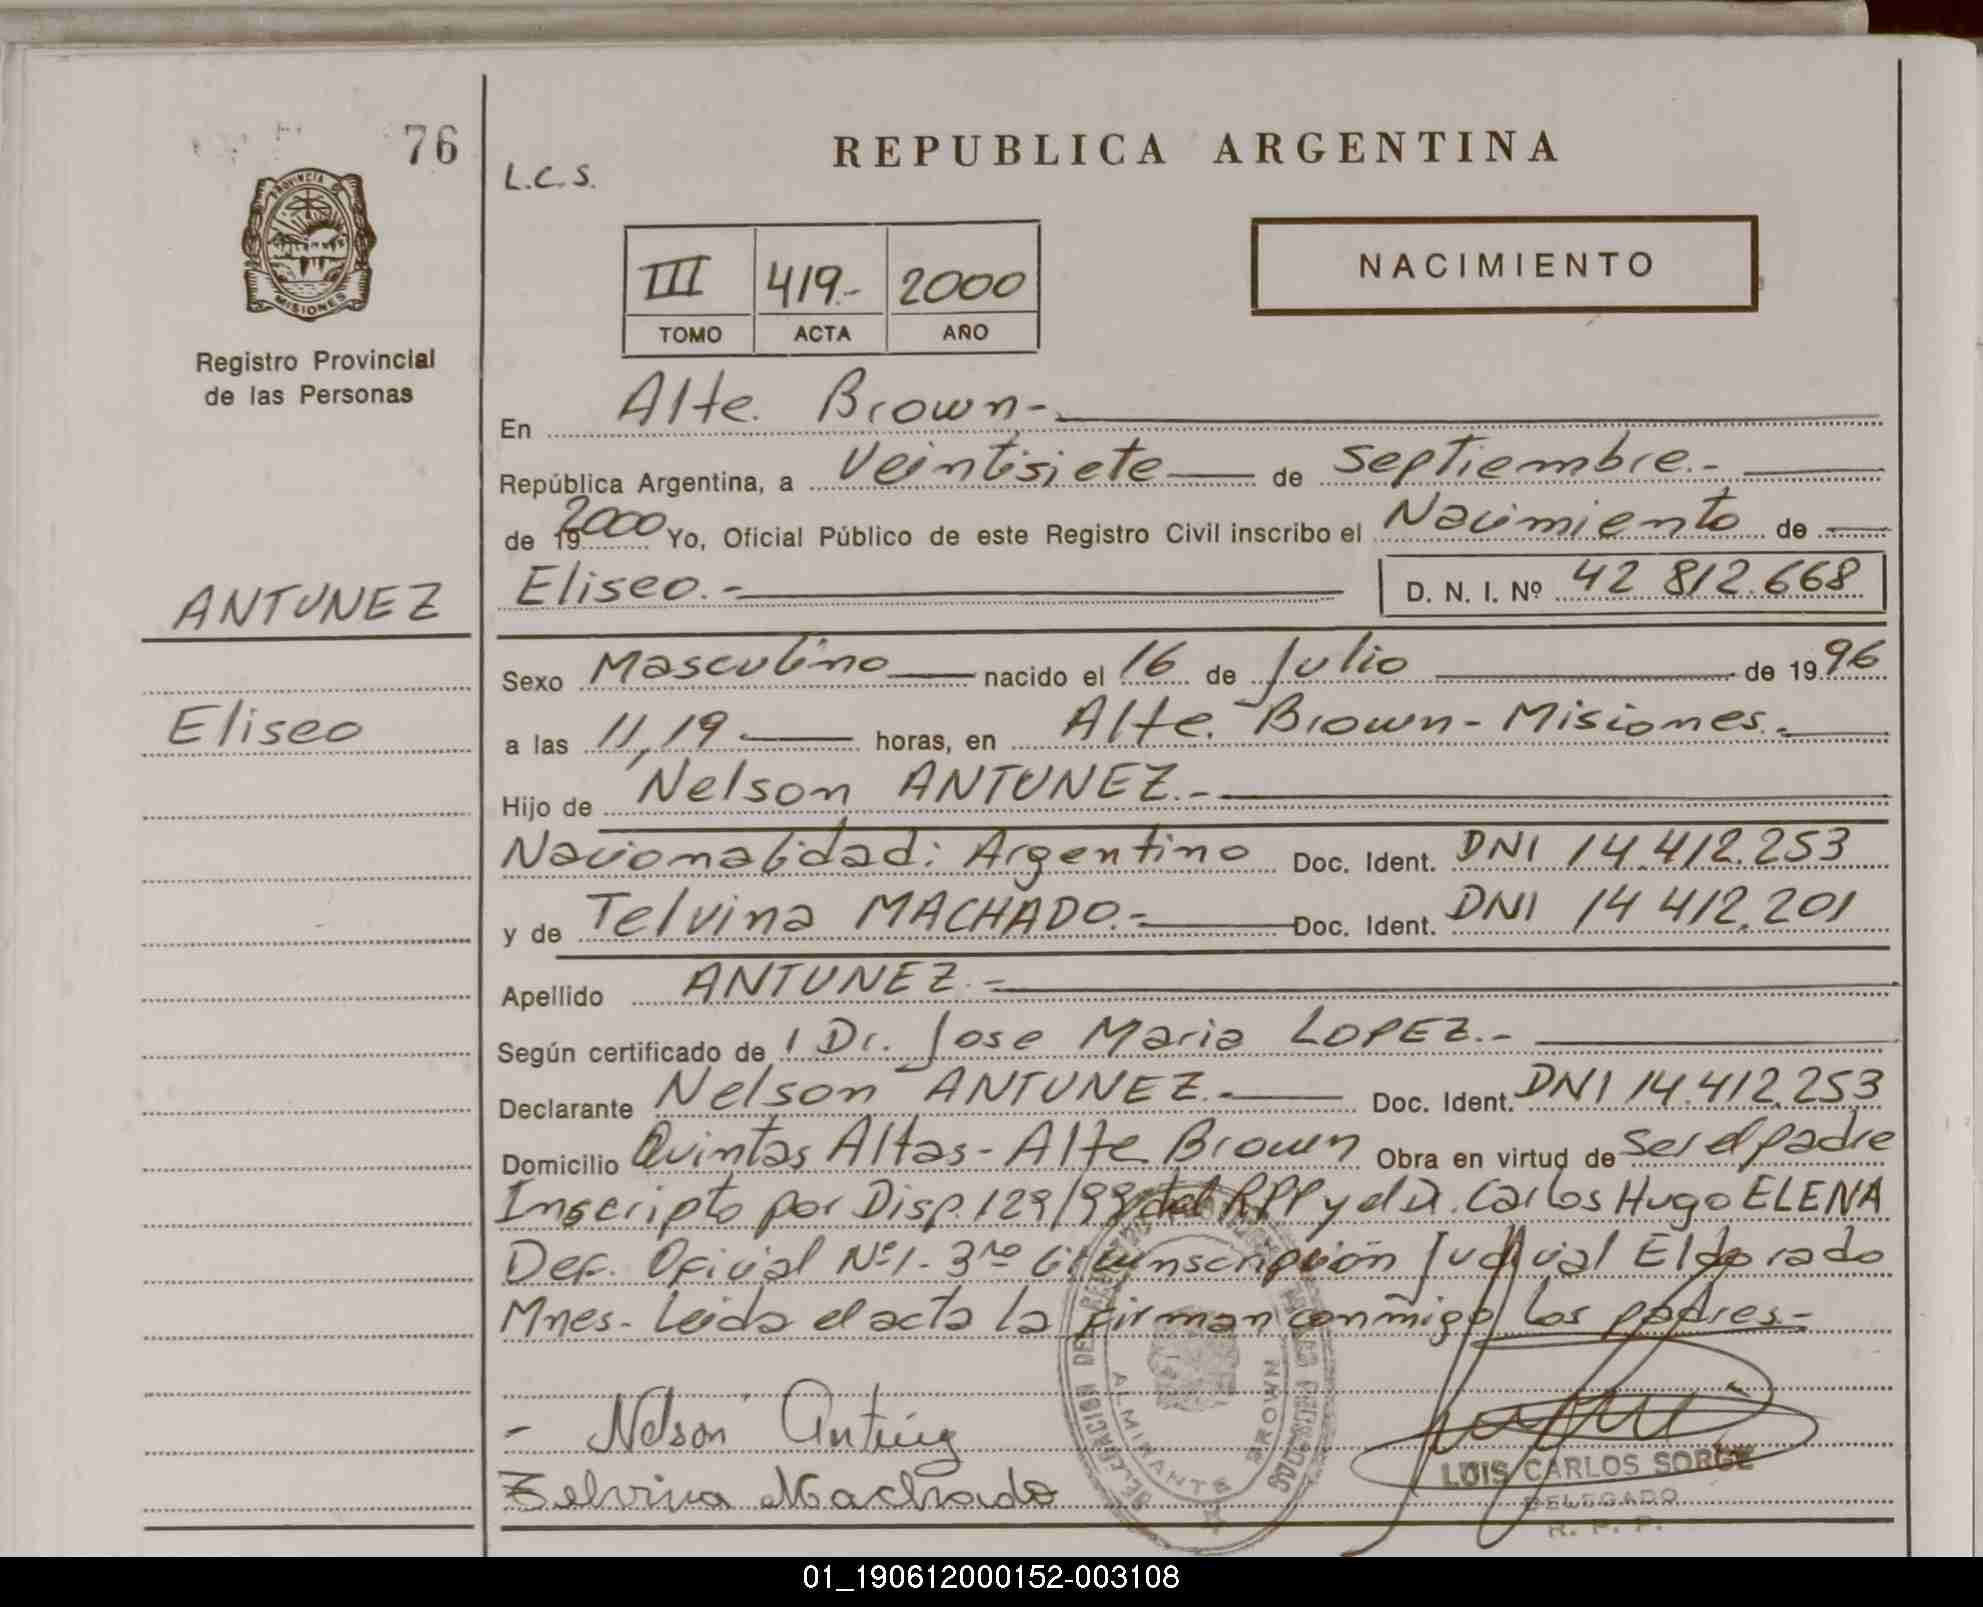 76
PROVINCIA DE
MISIONES
Registro Provincial
de las Personas
ANTUNEZ
Eliseo
L.C.S.
REPUBLICA ARGENTINA
III 419.- 2000
TOMO ACTA AÑO
NACIMIENTO
En Alte. Brown-
República Argentina, a Veintisiete de Septiembre.-
de 19 2000 Yo, Oficial Público de este Registro Civil inscribo el Nacimiento de
Eliseo.- D. N. I. Nº 42 812.668
Sexo Masculino nacido el 16 de Julio de 19 96
a las 11,19 horas, en Alte. Brown - Misiones.-
Hijo de Nelson ANTUNEZ.-
Nacionalidad: Argentino Doc. Ident. DNI 14.412.253
y de Telvina MACHADO.- Doc. Ident. DNI 14 412.201
Apellido ANTUNEZ.-
Según certificado de 1 Dr. Jose Maria LOPEZ.-
Declarante Nelson ANTUNEZ.- Doc. Ident. DNI 14.412.253
Domicilio Quintas Altas - Alte Brown Obra en virtud de ser el padre
Inscripto por Disp. 129/99 del RPP y el Dr. Carlos Hugo ELENA
Def. Oficial Nº1. 3ra Circunscripción Judicial Eldorado
Mnes- Leida el acta la firman conmigo los padres-
- Nelson Antúnez
Telvina Machado
ALMIRANTE BROWN
LUIS CARLOS SORGE
DELEGADO
R. P. P.
01_190612000152-003108